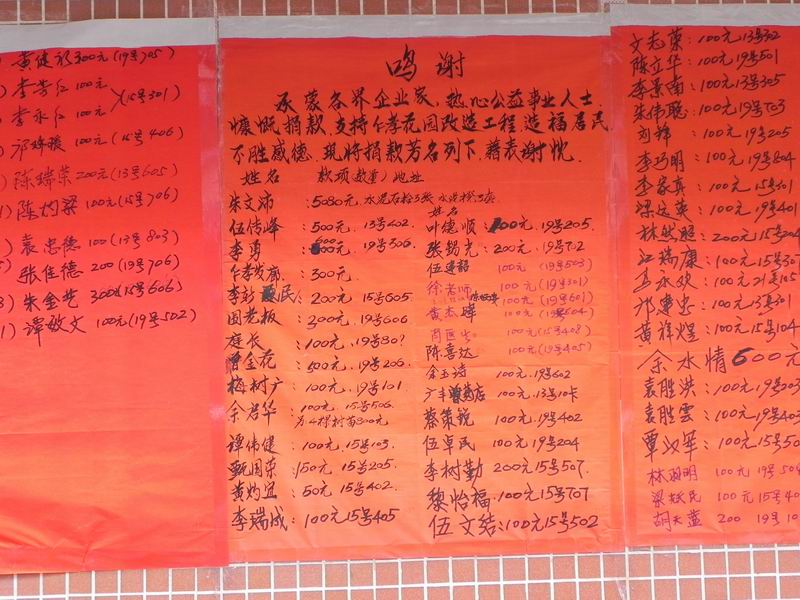 黄健 300元(19号705)
李芳仁 100元
李永仁 100元 (15号301)
邓 100元(15号406)
陈瑞荣 200元(13号605)
陈灼梁 100元(15号706)
袁忠德 100(13号803)
张佳德 200(19号706)
朱金 300(15号606)
谭敏文 100元(19号502)
鸣谢
承蒙各界企业家、热心公益事业人士、
慷慨捐款、支持仁孝花园改造工程、造福居民
不胜感德、现将捐款芳名列下、藉表谢忱
姓名 款项(数量)地址
朱文沛 :5080元、水泥石柃3张
伍传峰 :500元、13号402、
李勇 : 19号306、
仁孝发廊 :300元、
李彭 民:200元 15号605
周老板 :200元、19号606
康长 :100元、19号80?
曾金花 :500元、19号206、
梅树广 :100元、19号101、
余君华 :100元、15号506、
为4棵树苗800元
谭伟健 :100元、15号103、
甄国荣 :150元、15号205、
黄灼宜 :50元 15号402、
李瑞成:100元15号405
姓名
叶德顺:100元、19号205、
张锡光:200元、19号702
伍 100元 (19号503)
徐老师 100元 (19号301)
100元(19号601)
黄杰辉 100元 (19号504)
100元(15号408)
陈喜达 100元(19号405)
余玉诗 100元、19号602
100元、13号10卡
蔡策锐 100元、19号402
伍卓民 100元、19号204
李树勤 200元15号507、
黎怡福、100元15号707
伍文结:100元15号502
文志荣:100元13号302
陈立华:100元19号501
李景南:100元13号305
朱伟聪:100元19号703
刘 :100元19号205
李巧明:100元19号804
李家真:100元15号301
梁远英:100元19号401
林然照:200元15号204
江瑞康:100元15号30
100元21号105
邓 忠:100元13号301
黄祥煜:100元15号104
余水情600元
袁胜洪:100元19号903
袁胜雲:100元19号403
覃 军:100元15号50
林淑明 100元 19号504
梁 民 100元15号40
胡天蓝 200 19号10